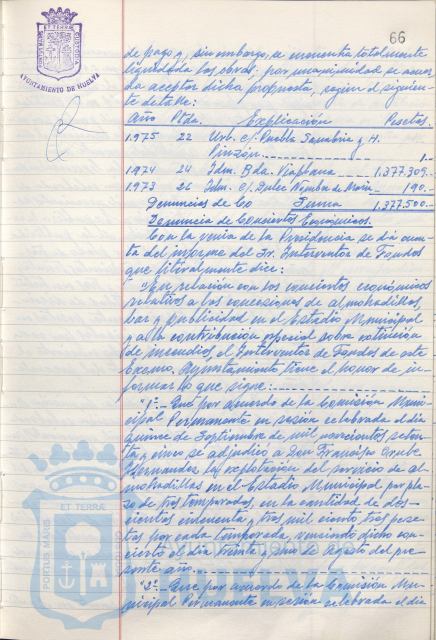 66
AYUNTAMIENTO DE HUELVA
de pago y, sin embargo, se encuentra totalmente
liquidada las obras; por unanimidad se acuer-
da aceptar dicha propuesta, según el siguien-
te detalle:
Año Ptda. Explicación Pesetas.
1.975 22 Urb. c/. Puebla Sanabria y H.
Pinzón 1.-
1.974 24 Idm. Bda. Viaplana 1.377.309.-
1.973 26 Idm. c/. Dulce Nombre de María 190.-
Suma 1.377.500.-
Denuncias de Co
Denuncia de Conciertos Económicos.
Con la venia de la Presidencia se dió cuen-
ta del informe del Sr. Interventor de Fondos
que literalmente dice:
"En relación con los conciertos económicos
relativos a las concesiones de almohadillas,
bar y publicidad en el Estadio Municipal
y a la contribución especial sobre extinción
de incendios, el Interventor de Fondos de este
Excmo. Ayuntamiento tiene el honor de in-
formar lo que sigue:
"1º.- Que por acuerdo de la Comisión Muni-
cipal Permanente en sesión celebrada el día
quince de Septiembre de mil novecientos seten-
ta y cinco se adjudicó a Don Francisco
Hernandez la explotación del servicio de al-
mohadillas en el Estadio Municipal por pla-
zo de tres temporadas, en la cantidad de dos-
cientas cincuenta y tres mil ciento tres pese-
tas por cada temporada, venciendo dicho con-
cierto el día treinta y uno de Agosto del pre-
sente año.
"2º.- Que por acuerdo de la Comisión Mu-
nicipal Permanente en sesión celebrada el día
ET TERRA
PORTUS MARIS